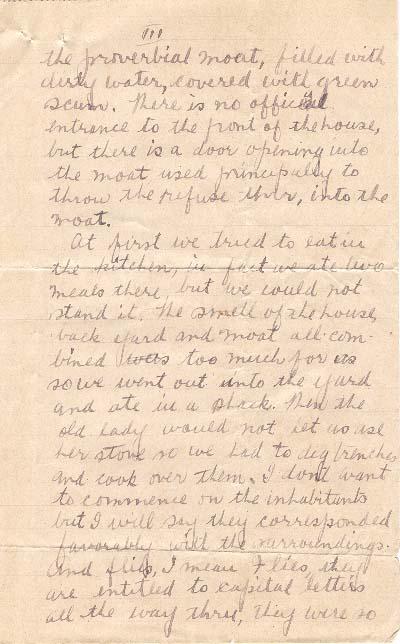 III
the proverbial moat, filled with
dirty water, covered with green
scum. There is no official
entrance to the front of the house,
but there is a door opening into
the moat used principally to
throw the refuse thru, into the
moat.
At first we tried to eat in
the kitchen, in fact we ate two
meals there, but we could not
stand it. The smell of the house,
back yard and moat all com-
bined was too much for us
so we went out into the yard
and ate in a shack. Then the
old lady would not let us use
her stove so we had to dig trenches
and cook over them. I dont want
to commence on the inhabitants
but I will say they corresponded
favorably with the surroundings.
And flies, I mean Flies, they
are entitled to capital letters
all the way thru, they were so